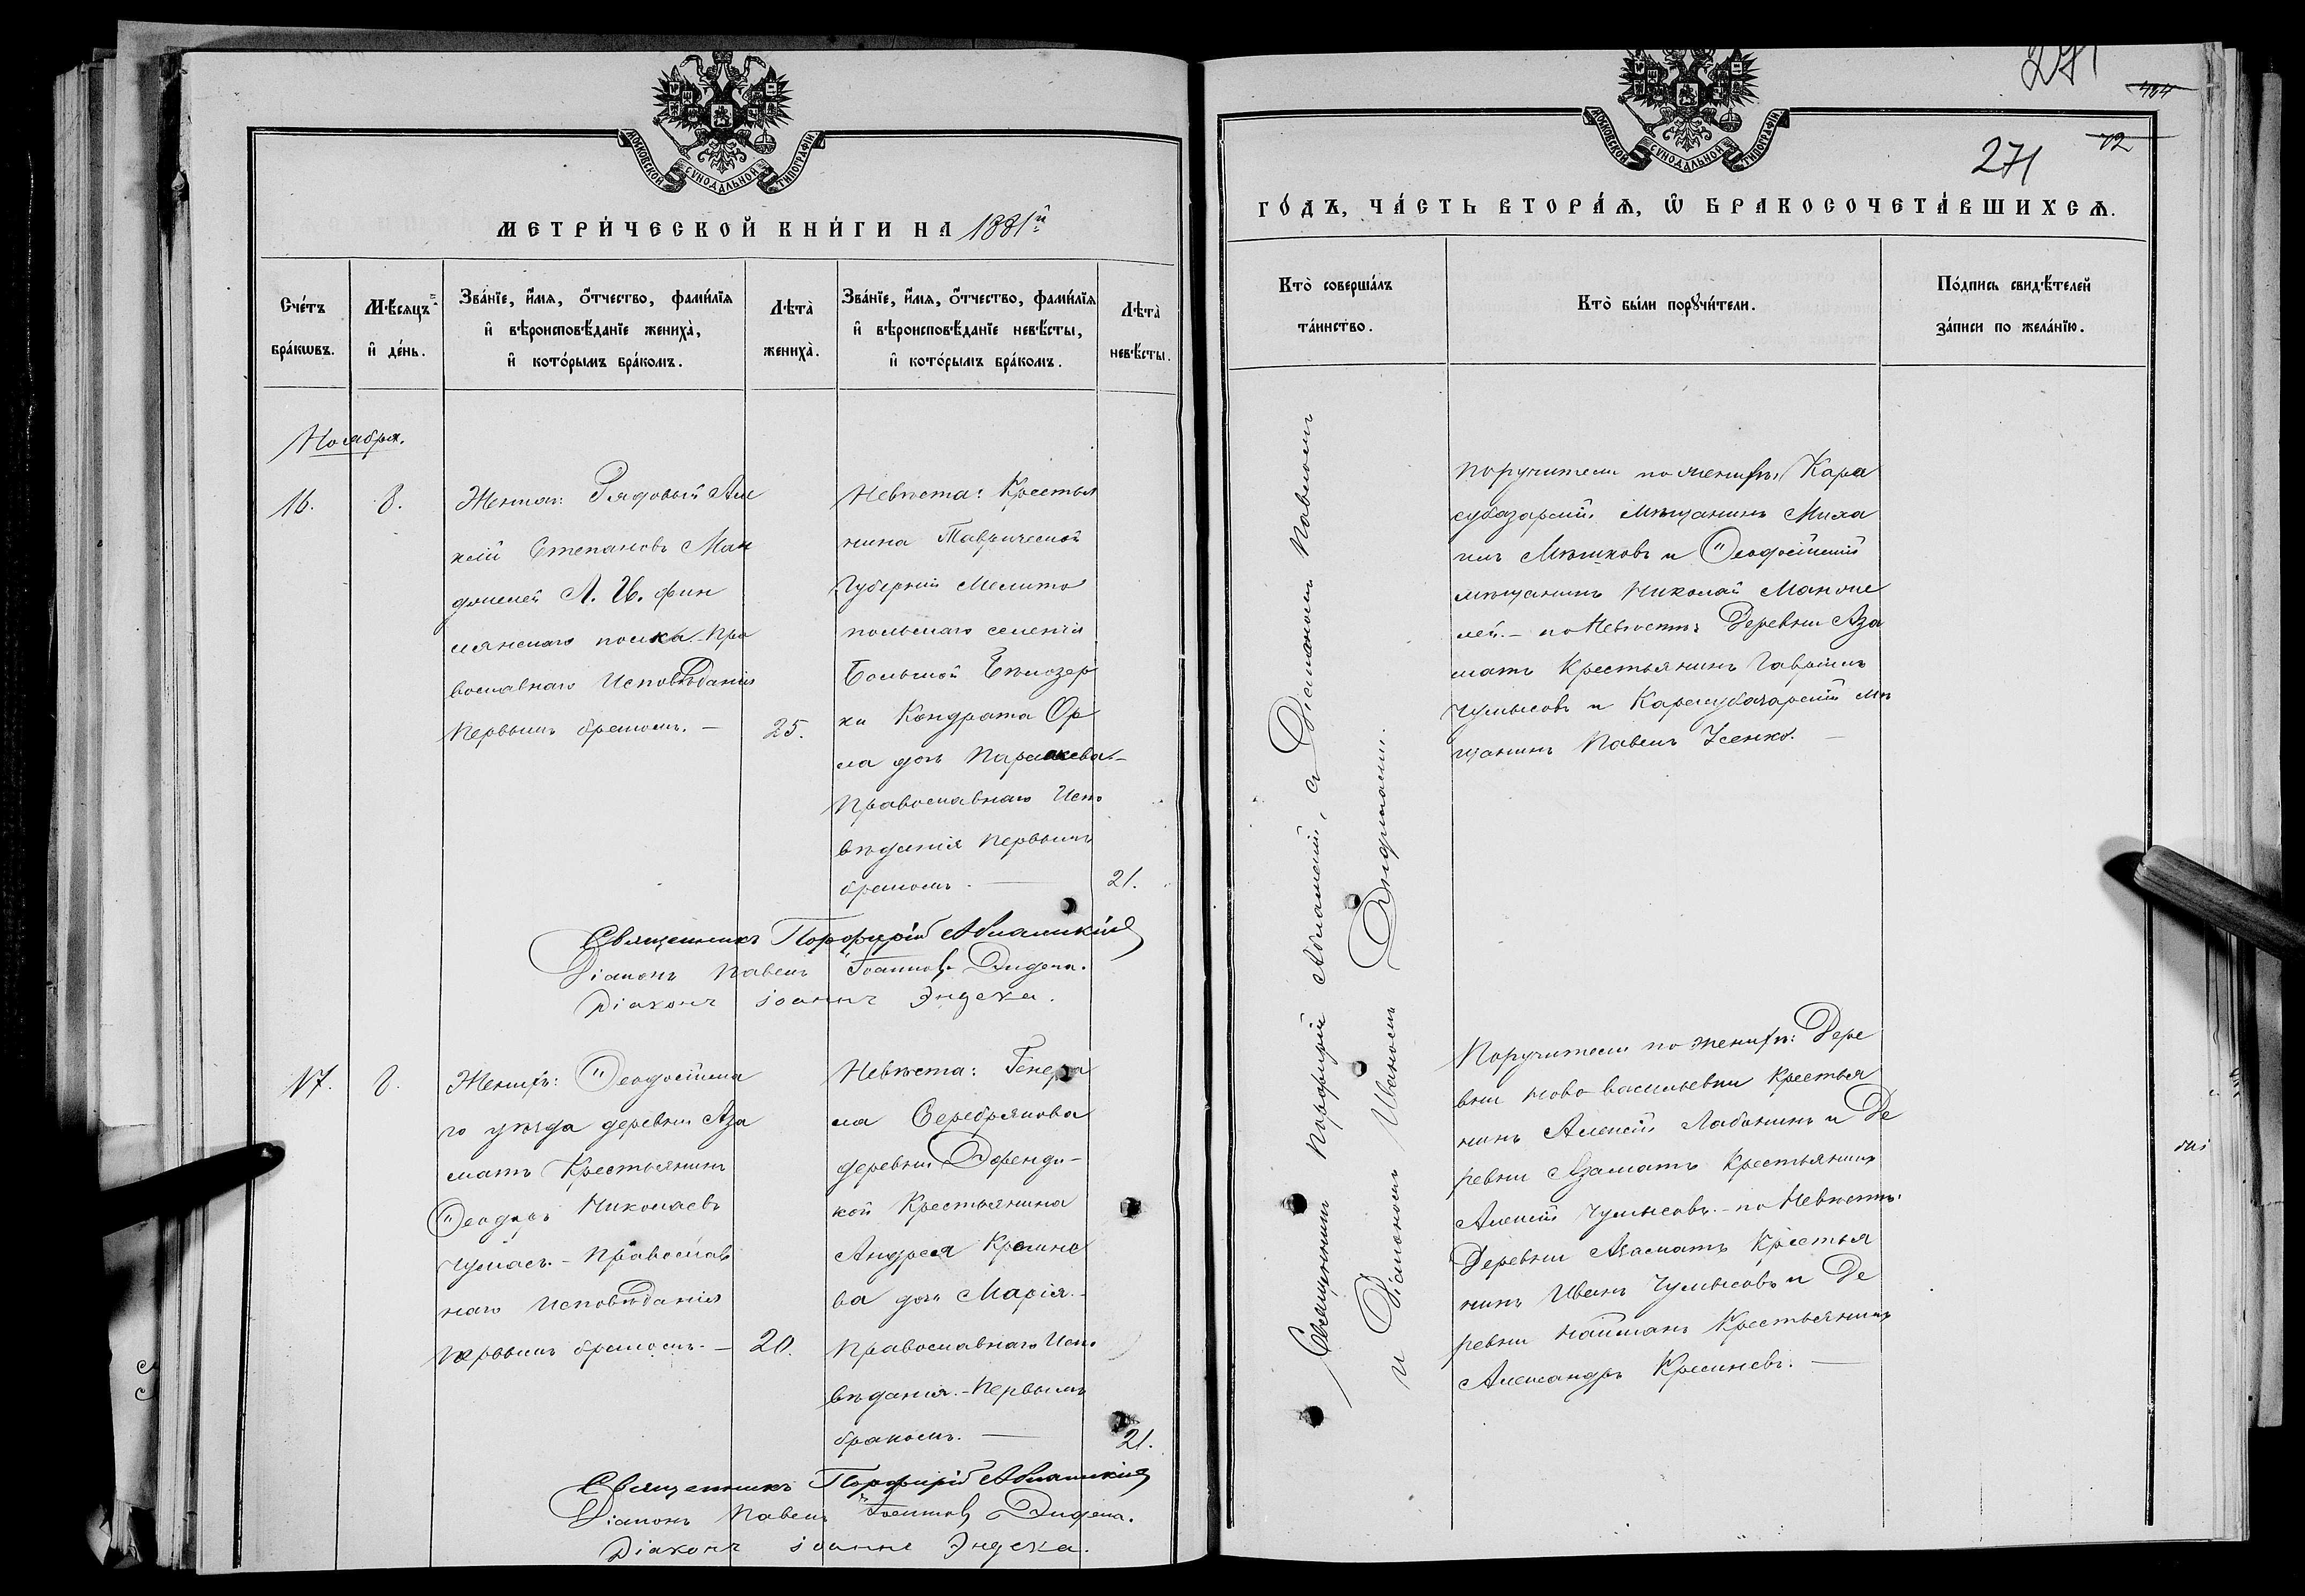 МОСКОВСКОЙ СУНОДАЛЬНОЙ ТИПОГРАФІИ
МЕТРИ́ЧЕСКОЙ КНИ́ГИ НА 1881й
Сче́тъ бра́кѡвъ.
Мѣ́сяцъ и҆ де́нь.
Зва́нїе, и҆́мя, ѻ҆́тчество, фами́лїя и҆ вѣроисповѣ́данїе жениха̀, и҆ кото́рымъ бра́комъ.
Лѣта̀ жениха̀.
Зва́нїе, и҆́мя, ѻ҆́тчество, фами́лїя и҆ вѣроисповѣ́данїе невѣ́сты, и҆ кото́рымъ бра́комъ.
Лѣта̀ невѣ́сты.
Ноября.
16.
8.
Женихъ: Рядовый
Степановъ Ман
Л. Гв. фин
ляндскаго полка. Пра
вославнаго Исповѣданія
Первымъ бракомъ. —
25.
Невѣста: Крестья
нина Таврической
Губерніи Мелито
польскаго селенія
Большой Бѣлозер
ки Кондрата Ор
ла дочь Параскева. —
Православнаго Испо
вѣданія Первымъ
бракомъ. —
21.
Священникъ Порфирій
Діаконъ Павелъ
Діаконъ іоаннъ Эндека.
17.
8.
Женихъ: Ѳеодосійска
го уѣзда деревни Аза
матъ Крестьянинъ
Ѳеодоръ Николаевъ
Православ
наго Исповѣданія
Первымъ бракомъ. —
20.
Невѣста: Генера
ла Серебрякова
деревни
кой Крестьянина
Андрея
ва дочь Марія. —
Православнаго Испо
вѣданія. — Первымъ
бракомъ. —
21.
Священникъ Порфирій
Діаконъ Павелъ
Діаконъ іоаннъ Эндека.
МОСКОВСКОЙ СУНОДАЛЬНОЙ ТИПОГРАФІИ
271
404
72
271
ГО́ДЪ, ЧА́СТЬ ВТОРА́Я, Ѽ БРАКОСОЧЕТА́ВШИХСЯ.
Кто̀ соверша́лъ та́инство.
Кто̀ бы́ли порꙋчи́тели.
По́дпись свидѣ́телей за́писи по жела́нїю.
Священникъ Порфирій съ Діакономъ Павломъ
и Діакономъ Иваномъ
Поручители по женихѣ: Кара
субазарскій мѣщанинъ Миха
илъ Мѣшковъ и Ѳеодосійскій
мѣщанинъ Николай
лей. — по Невѣстѣ: Деревни Аза
матъ Крестьянинъ Гавріилъ
Чулысовъ и Карасубазарскій мѣ
щанинъ Павелъ Усенко. —
Поручители по женихѣ: Дере
вни Ново Васильевки Крестья
нинъ Алексѣй Лабонинъ и Де
ревни Азаматъ Крестьянинъ
Алексѣй Чулысовъ. — по Невѣстѣ:
Деревни Азаматъ Крестья
нинъ Иванъ Чулысовъ и Де
ревни Найманъ Крестьянинъ
Александръ